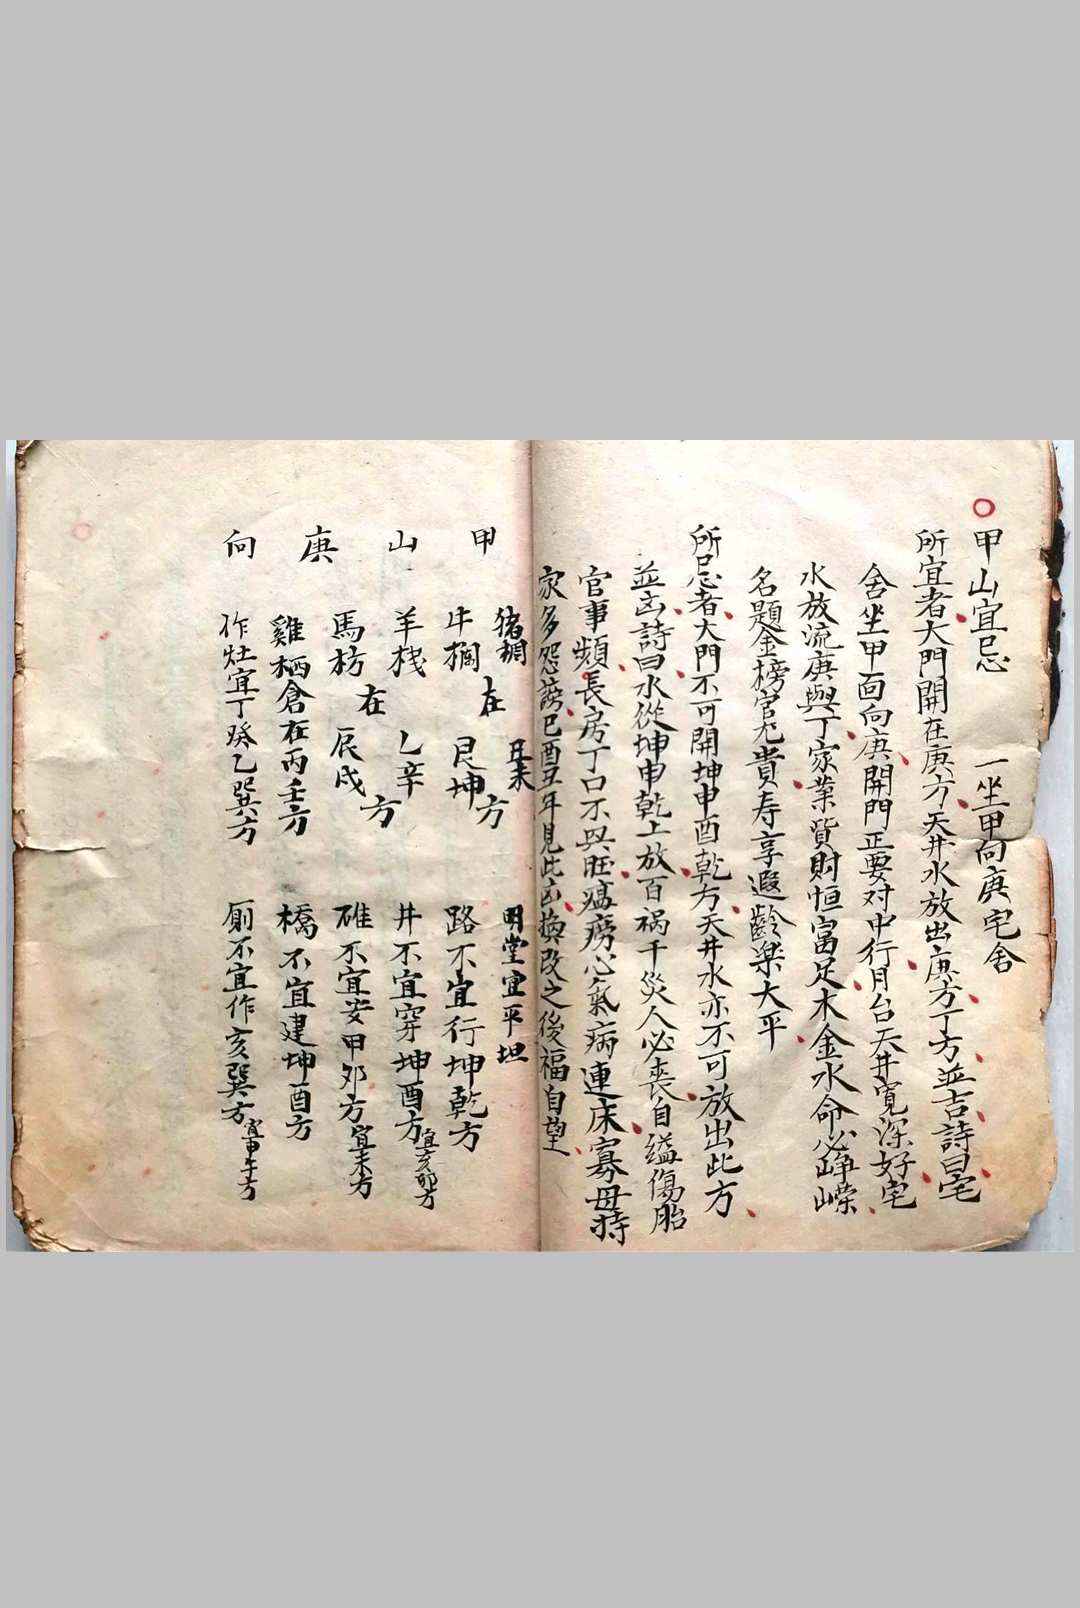 甲山宜忌　一坐甲向庚宅舍
所宜者大門開在庚方天井水放出庚方丁方並吉詩曰宅
舍坐甲面向庚開門正要对中行月台天井寬深好宅
水放流庚與丁家業貨財恒富足木金水命必崢嶸
名題金榜官尤貴寿享遐齡楽大平
所忌者大門不可開坤申酉乾方天井水亦不可放出此方
並凶詩曰水從坤申乾上放百祸千災人必喪自缢傷胎
官事頻長房丁口不興旺瘟痨心氣病連床寡母持
家多怨謗巳酉丑年見此凶換改之後福自望
甲山庚向
猪椆
牛欄
在
丑未
艮坤
方
羊棧
馬枋
在
乙辛
辰戌
方
雞栖倉在丙壬方
作灶宜丁癸乙巽方
明堂宜平坦
路不宜行坤乾方
井不宜穿坤酉方宜亥卯方
碓不宜安甲卯方宜未方
橋不宜建坤酉方
厠不宜作亥巽方宜甲午方